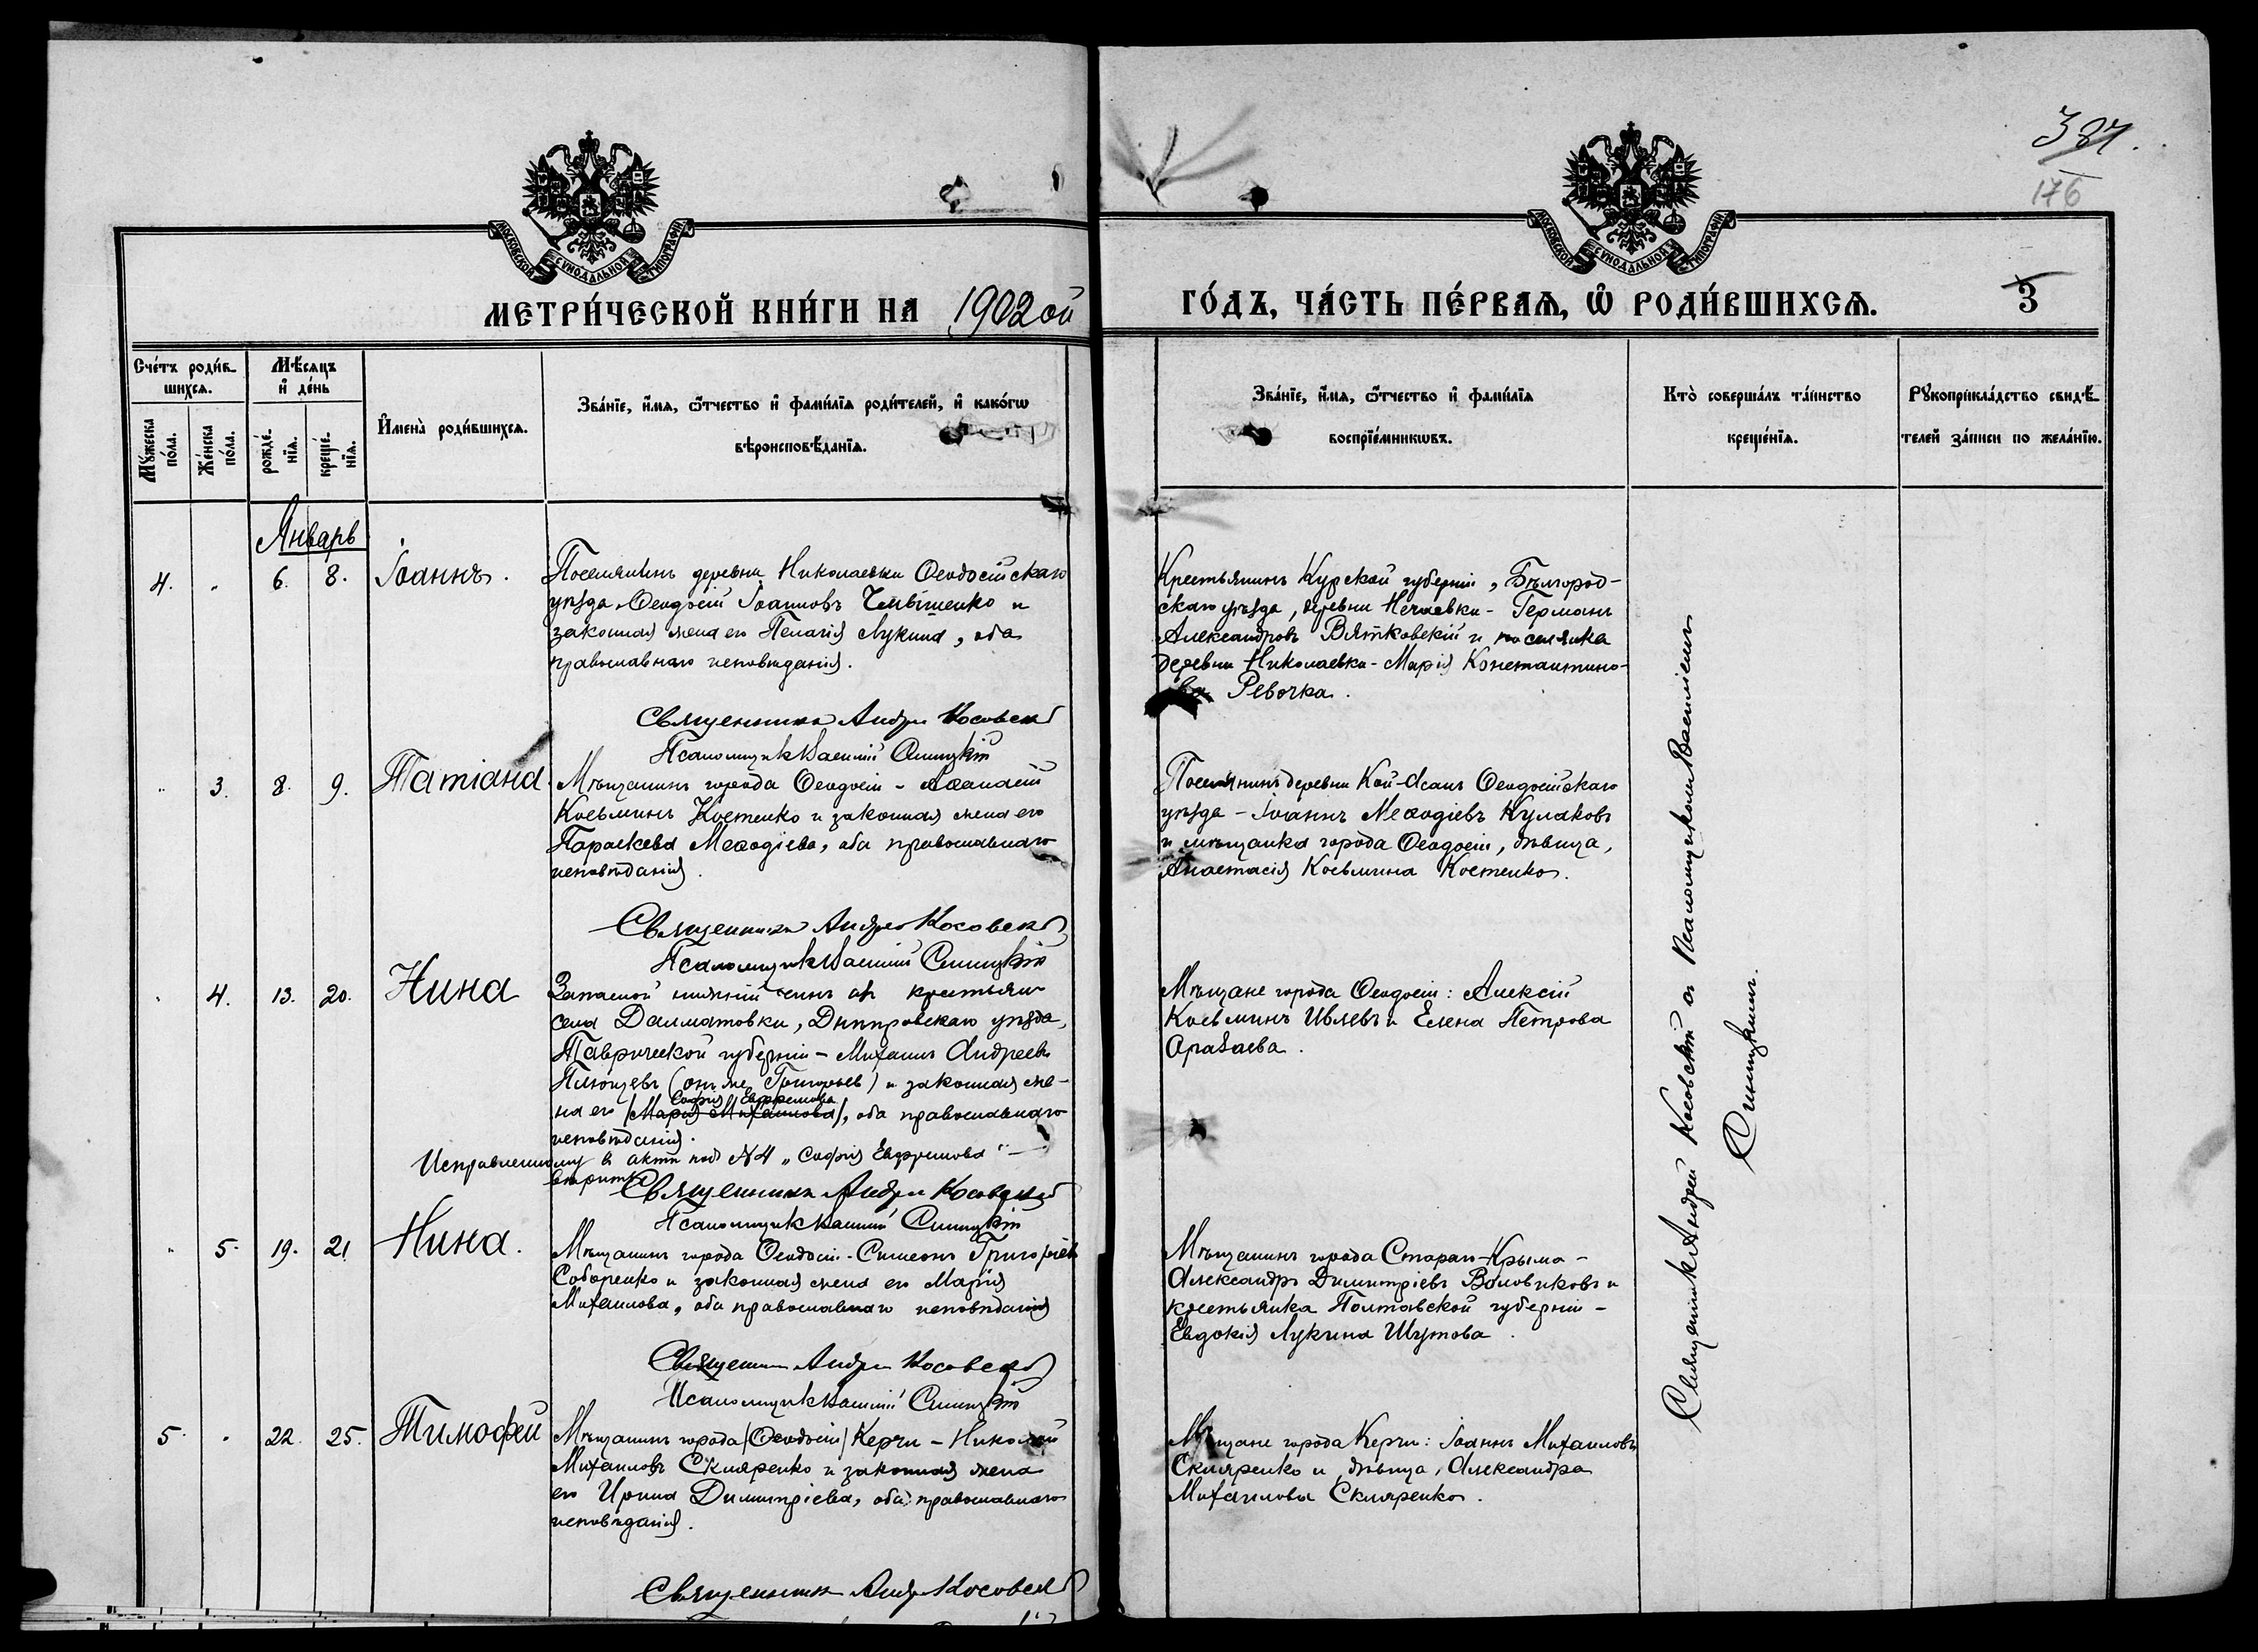 387.
176
МОСКОВСКОЙ СѴНОДАЛЬНОЙ ТИПОГРАФІИ
МОСКОВСКОЙ СѴНОДАЛЬНОЙ ТИПОГРАФІИ
МЕТРИ́ЧЕСКОЙ КНИ́ГИ НА 1902 ой
ГО́ДЪ, ЧА́СТЬ ПЕ́РВАѦ, Ѡ РОДИ́ВШИХСѦ.
3
Сче́тъ роди́вшихсѧ.
Мꙋ́жеска по́ла.
Же́нска по́ла.
Мѣ́сѧцъ и҆ де́нь
рожде́нїѧ.
креще́нїѧ.
И҆мена̀ роди́вшихсѧ.
Зва́нїе, и҆́мѧ, ѻ҆́тчество и҆ фами́лїѧ роди́телей, и҆ како́гѡ
вѣроисповѣ́данїѧ.
Зва́нїе, и҆́мѧ, ѻ҆́тчество и҆ фами́лїѧ
воспрїе́мникѡвъ.
Кто̀ соверша́лъ та́инство
креще́нїѧ.
Рꙋкоприкла́дство свидѣ́телей за́писи по жела́нїю.
Январь
4. " 6. 8. Іоаннъ.
Поселянинъ деревни Николаевки Ѳеодосійскаго
уѣзда Ѳеодосій Іоанновъ и
законная жена его Пелагія Лукина, оба
православнаго исповѣданія.
Священникъ Андрей Косовскій
Псаломщикъ Василій Синицкій
Крестьянинъ Курской губерніи, Бѣлгород-
скаго уѣзда, деревни Нечаевки - Германъ
Александровъ Вятковскій и поселянка
деревни Николаевки - Марія Константино-
ва Ревочка.
" 3. 8. 9. Татіана.
Мѣщанинъ города Ѳеодосіи - Аѳанасій
Косьминъ Костенко и законная жена его
Параскева Меѳодіева, оба православнаго
исповѣданія.
Священникъ Андрей Косовскій
Псаломщикъ Василій Синицкій
Поселянинъ деревни Кой-Асанъ Ѳеодосійскаго
уѣзда - Іоаннъ Меѳодіевъ Кулаковъ
и мѣщанка города Ѳеодосіи, дѣвица,
Анастасія Косьмина Костенко.
" 4. 13. 20. Нина
Запасной нижній чинъ из крестьян
села Далматовки, Днѣпровскаго уѣзда,
Таврической губерніи - Михаилъ Андреевъ
(онъ же Григорьевъ) и законная же-
София Евфремова
на его /Марія Михаилова/, оба православнаго
исповѣданія.
Исправленному в актѣ подъ №4 „София Евфремова" -
вѣрить
Священникъ Андрей Косовскій
Псаломщикъ Василій Синицкій
Мѣщане города Ѳеодосіи: Алексій
Косьминъ Ивлевъ и Елена Петрова
" 5. 19. 21 Нина.
Мѣщанинъ города Ѳеодосіи - Симеонъ Григорьевъ
Соборенко и законная жена его Марія
Михаилова, оба православнаго исповѣданія
Священникъ Андрей Косовскій
Псаломщикъ Василій Синицкій
Мѣщанинъ города Стараго-Крыма -
Александръ Димитріевъ Воловиковъ и
крестьянка Полтавской губерніи -
Евдокія Лукина Шутова.
5. " 22. 25. Тимофей
Мѣщанинъ города /Ѳеодосіи/ Керчи - Николай
Михаиловъ Скляренко и законная жена
его Ирина Димитріева, оба православнаго
исповѣданія.
Священникъ Андрей Косовскій
Мѣщане города Керчи: Іоаннъ Михаиловъ
Скляренко и дѣвица, Александра
Михаилова Скляренко.
Священникъ Андрей Косовскій съ Псаломщикомъ Василіемъ
Синицкимъ.